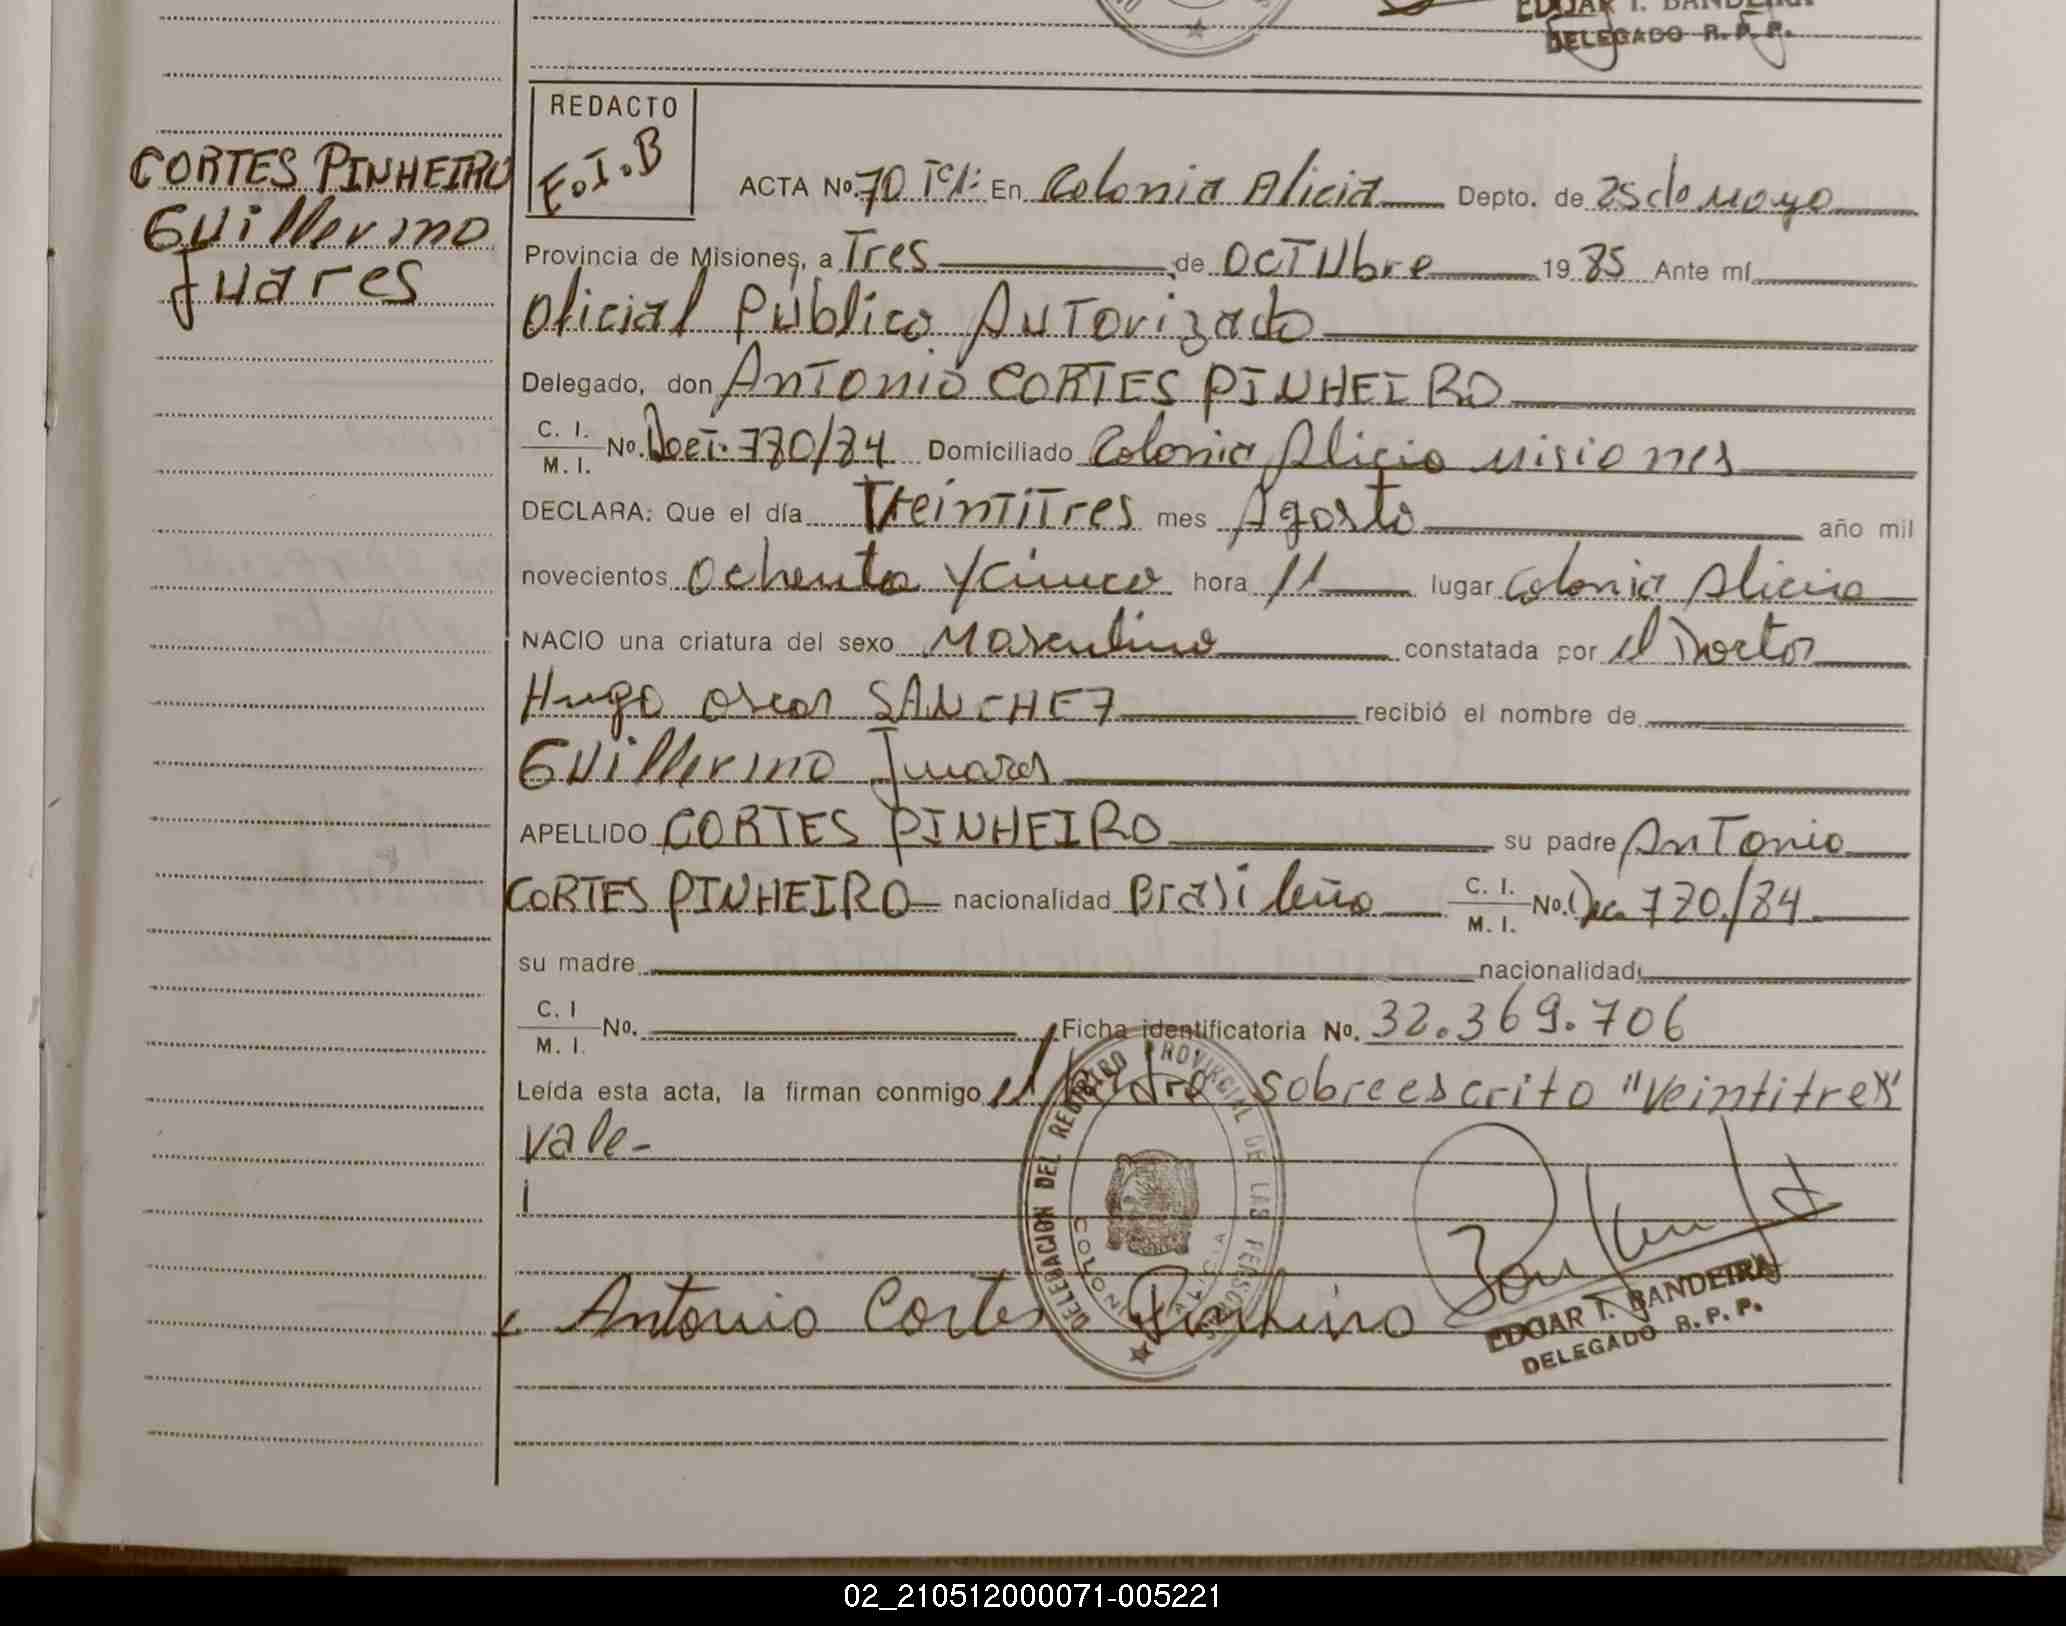 EDGAR I. BANDEIRA
DELEGADO R. P. P.
CORTES PINHEIRO
Guillermo
Juares
REDACTO
E.I.B
ACTA No. 70 Tº1: En Colonia Alicia Depto. de 25 de Mayo
Provincia de Misiones, a Tres de OCTUbre 19 85 Ante mí
Oficial Público Autorizado
Delegado, don Antonio CORTES PINHEIRO
C. I.
M. I. No. Doct. 780/84 Domiciliado Colonia Alicia Misiones
DECLARA: Que el día Veintitres mes Agosto año mil
novecientos ochenta y cinco hora 11 lugar Colonia Alicia
NACIO una criatura del sexo Masculino constatada por el Doctor
Hugo Oscar SANCHEZ recibió el nombre de
Guillermo Juares
APELLIDO CORTES PINHEIRO su padre Antonio
CORTES PINHEIRO nacionalidad Brasileño C. I.
M. I. No. 780/84
su madre nacionalidad
C. I
M. I. No. Ficha identificatoria No. 32.369.706
Leída esta acta, la firman conmigo el Padre sobreescrito "veintitres"
vale-
DELEGACION DEL REGISTRO PROVINCIAL DE LAS PERSONAS
COLONIA ALICIA
Antonio Cortes Pinheiro
EDGAR I. BANDEIRA
DELEGADO R. P. P.
02_210512000071-005221